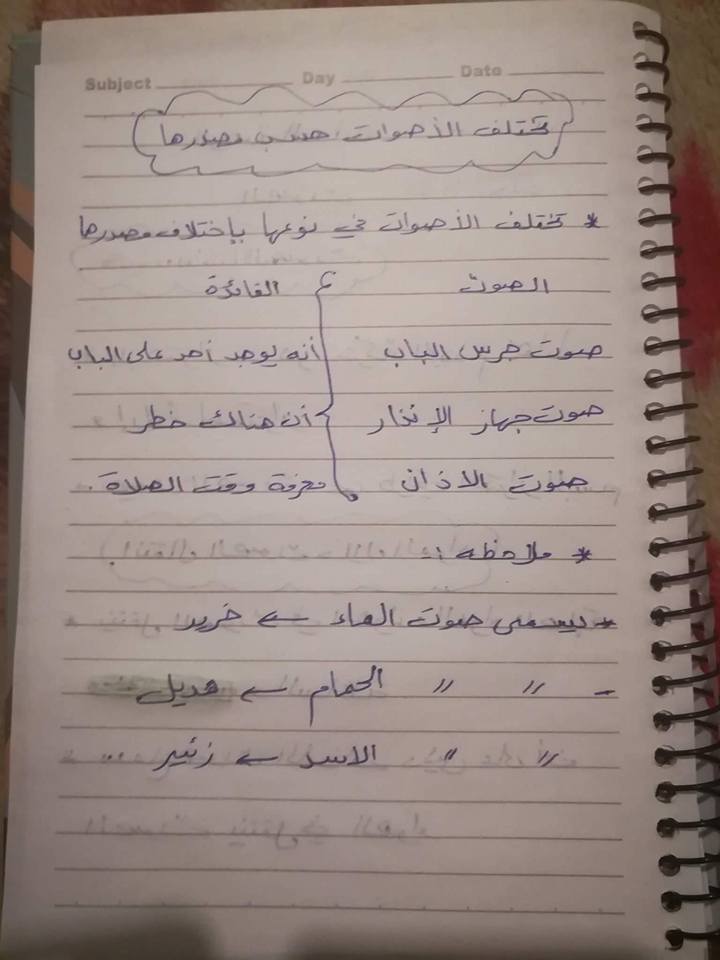 Subject Day Date
تختلف الأصوات حسب مصدرها
* تختلف الأصوات في نوعها بإختلاف مصدرها
الصوت الفائدة
صوت جرس الباب أنه يوجد أحد على الباب
صوت جهاز الإنذار أن هناك خطر
صوت الاذان معرفة وقت الصلاة.
* ملاحظه :-
* يسمى صوت الماء ← خرير
- " " الحمام ← هديل
" " الاسد ← زئير